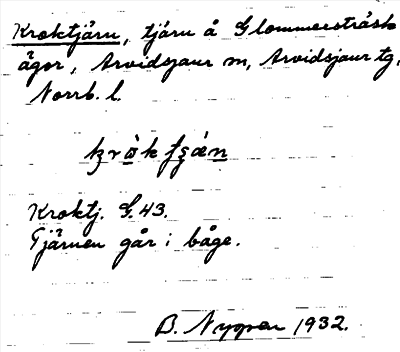 Kroktjärn, tjärn å Glommersträsk
ägor, Arvidsjaur sn, Arvidsjaur tg,
Norrb. l.
Kroktj. G.43.
Tjärnen går i båge.
B. Nygren 1932.